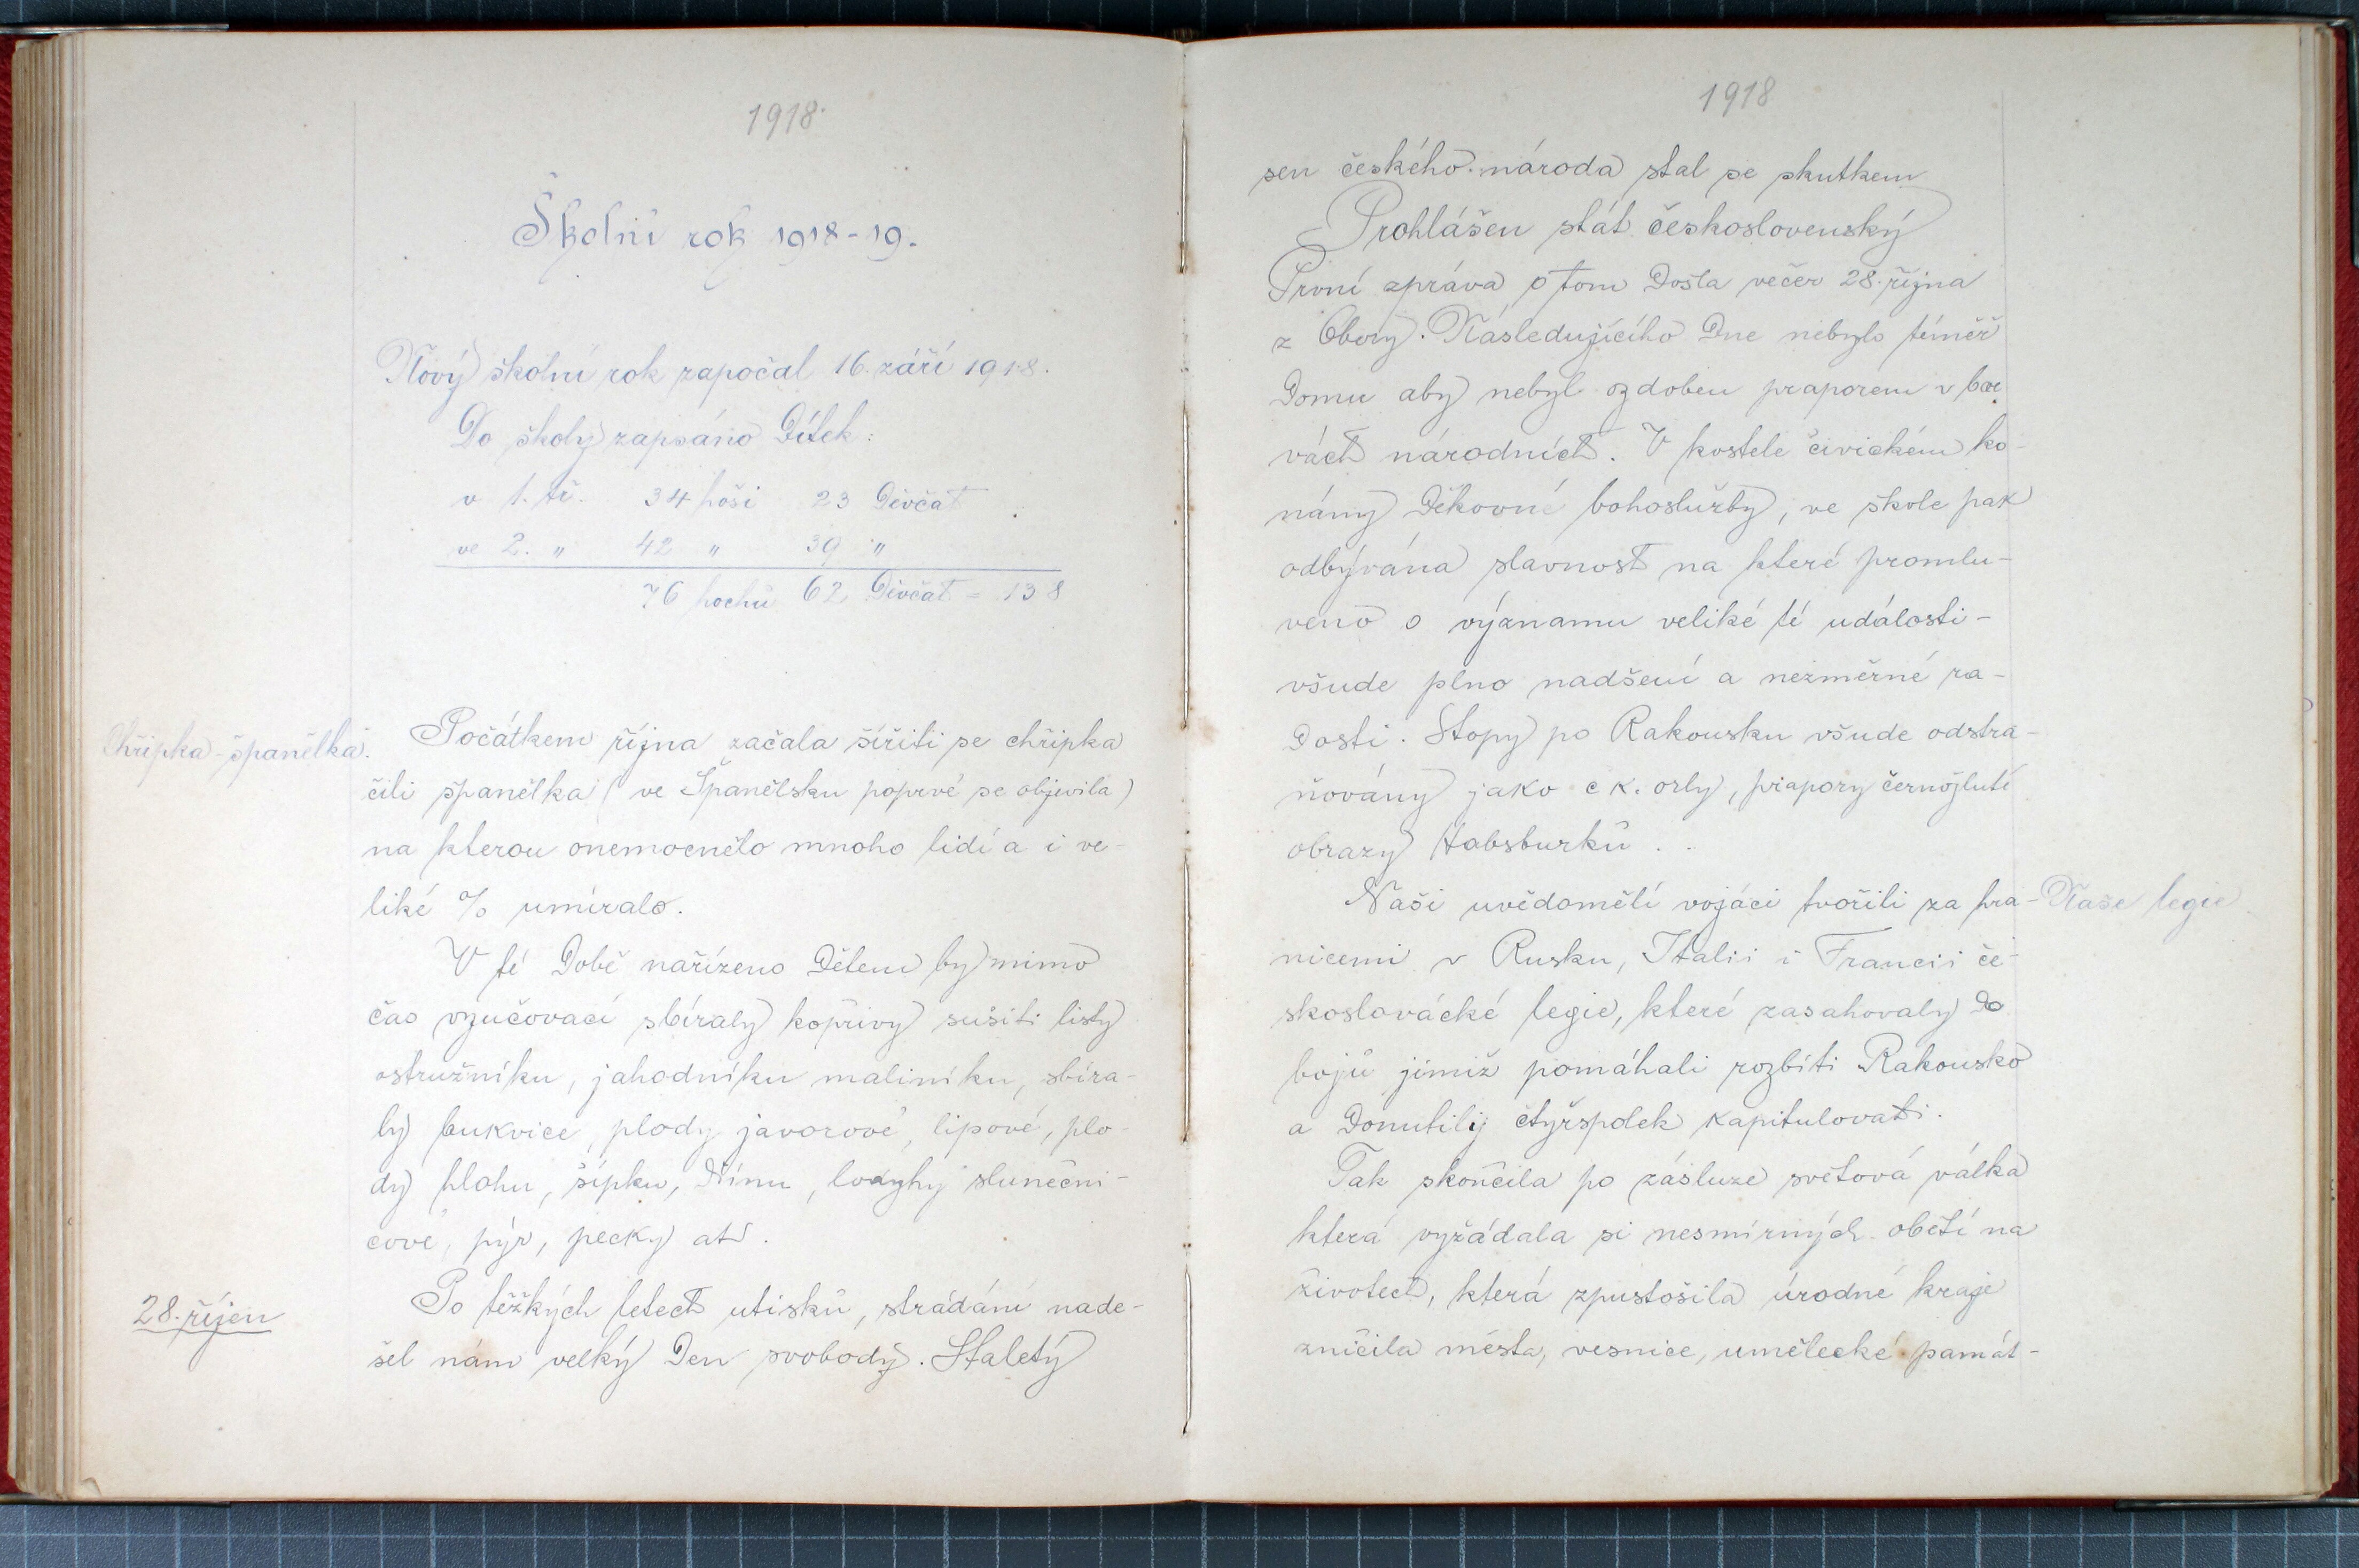 1918.
Školní rok 1918-19.
Nový školní rok započal 16. září 1918.
Do školy zapsáno dítek:
v 1. tř. 34 hoši 23 děvčat
ve 2. " 42 " 39 "
76 hochů 62 děvčat = 138
Chřipka - španělka.
Počátkem října začala šířiti se chřipka
čili španělka (ve Španělsku poprvé se objevila)
na kterou onemocnělo mnoho lidí a i ve-
liké % umíralo.
V té době nařízeno dětem by mimo
čas vyučovací sbíraly kopřivy sušiti listy
ostružníku, jahodníku maliníku, sbíra-
ly bukvice, plody javorové, lipové, plo-
dy hlohu, šípku, dřínu, lodyhy slunečni-
cové, pýr, pecky atd.
28. říjen
Po těžkých letech útisků, strádání nade-
šel nám velký den svobody. Staletý
1918
sen českého národa stal se skutkem
Prohlášen stát československý
První zpráva o tom došla večer 28. října
z Obory. Následujícího dne nebylo téměř
domu aby nebyl ozdoben praporem v bar
vách národních. V kostele čivickém ko-
nány děkovné bohoslužby, ve škole pak
odbývána slavnost na které promlu-
veno o významu veliké té události -
všude plno nadšení a nezměrné ra-
dosti. Stopy po Rakousku všude odstra-
ňovány jako c k. orly, prapory černožluté
obrazy Habsburků . .
Naši uvědomělí vojáci tvořili za hra-
Naše legie
nicemi v Rusku, Italii i Francii če-
skoslovácké legie, které zasahovaly do
bojů jimiž pomáhali rozbíti Rakousko
a donutily čtyřspolek kapitulovati.
Tak skončila po zásluze světová válka
která vyžádala si nesmírných obětí na
životech, která zpustošila úrodné kraje
zničila města, vesnice, umělecké památ-